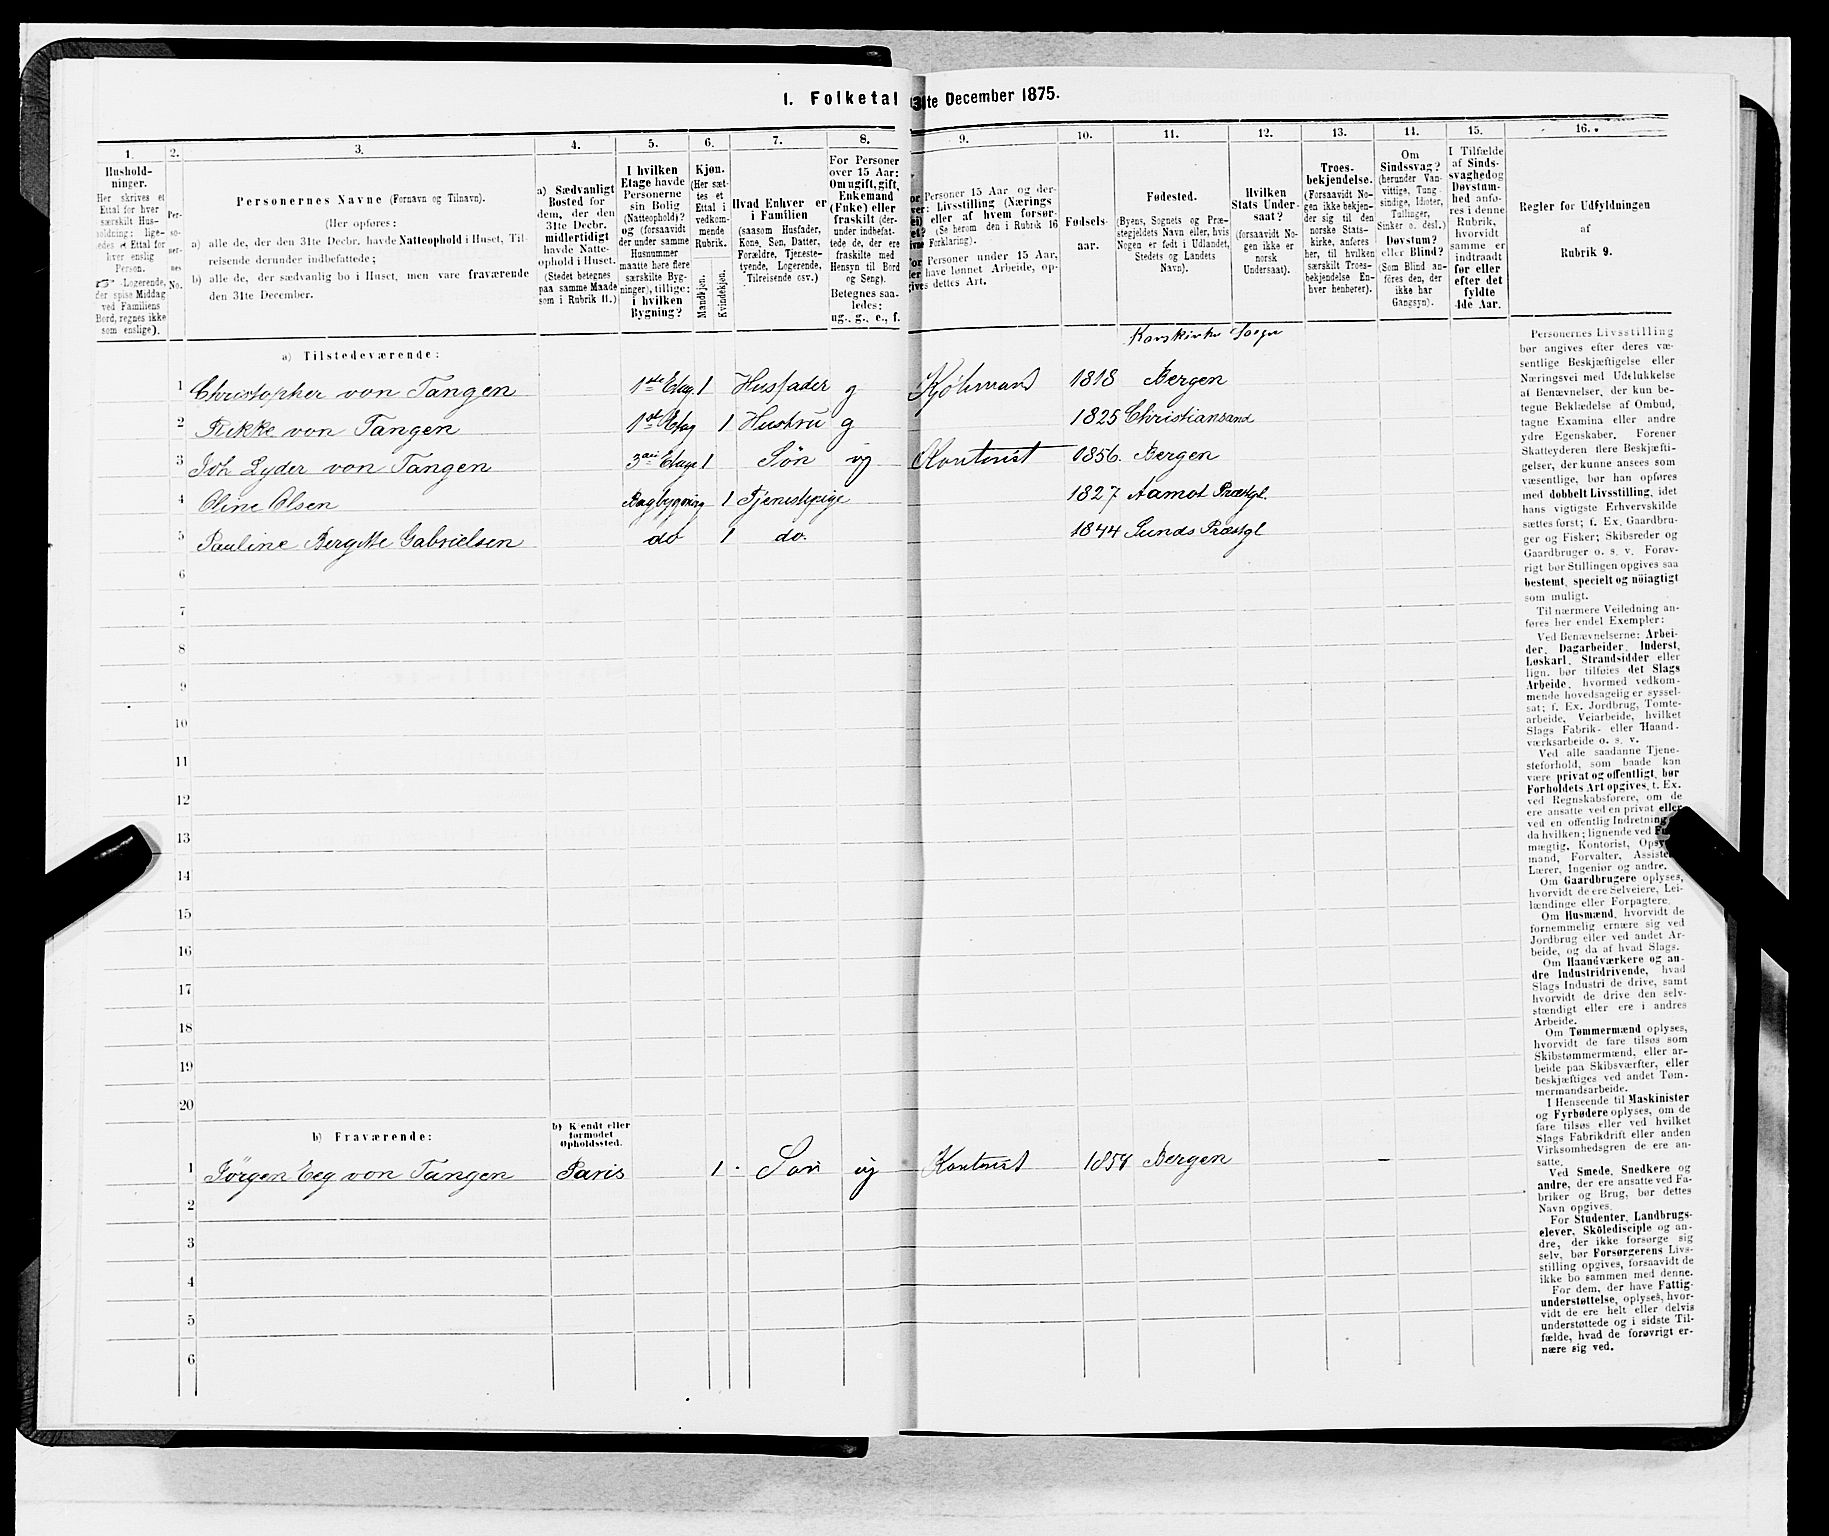 I. Folketal 31te December 1875.
1. 2. 3. 4. 5. 6. 7. 8. 9. 10. 11. 12. 13. 14. 15. 16.
Husholdninger.
Her skrives et
Ettal for hver
særskilt Hus-
holdning; lige-
ledes et Ettal for
hver enslig
Person.
Logerende,
der spise Middag
ved Familiens
Bord, regnes ikke
som enslige).
Per-
soner-
nes
No.
Personernes Navne (Fornavn og Tilnavn).
(Her opføres:
a) alle de, der den 31te Decbr. havde Natteophold i Huset, Til-
reisende derunder indbefattede;
b) alle de, der sædvanlig bo i Huset, men vare fraværende
den 31te December.
a) Sædvanligt
Bosted for
dem, der den
31te Decbr.
midlertidigt
havde Natte-
ophold i Huset.
(Stedet betegnes
paa samme Maade
som i Rubrik 11.)
I hvilken
Etage havde
Personerne
sin Bolig
(Natteophold)?
og (forsaavidt
der under samme
Husnummer
maatte høre flere
særskilte Byg-
ninger), tillige:
i hvilken
Bygning?
Kjøn.
(Her sæt-
tes et
Ettal i
vedkom-
mende
Rubrik.
Mandkjøn.
Kvindekjøn.
Hvad Enhver er
i Familien
(saasom Husfader,
Kone, Søn, Datter,
Forældre, Tjeneste-
tyende, Logerende,
Tilreisende osv.)
For Personer
over 15 Aar:
Om ugift, gift,
Enkemand
(Enke) eller
fraskilt (der-
under indbefat-
tede de, der ere
fraskilte med
Hensyn til Bord
og Seng).
Betegnes saa-
ledes:
ug., g., e., f.
Personer 15 Aar og der-
over: Livsstilling (Nærings
eller af hvem forsør-
get? (Se herom den i Rubrik 16
Forklaring).
Personer under 15 Aar,
have lønnet Arbeide, op-
gives dettes Art.
Fødsels-
aar.
Fødested.
(Byens, Sognets og Præ-
stegjeldets Navn eller, hvis
Nogen er født i Udlandet,
Stedets og Landets
Navn).
Hvilken
Stats Under-
saat?
(forsaavidt No-
gen ikke er
norsk
Undersaat).
Troes-
bekjendelse.
(Forsaavidt No-
gen ikke bekjen-
der sig til den
norske Stats-
kirke, anføres
her, til hvilken
særskilt Troes-
bekjendelse En-
hver henhører).
Om
Sindssvag?
(herunder Van-
vittige, Tung-
sindige, Idioter,
Tullinger,
Sinker o. desl.)
Døvstum?
eller Blind?
(Som Blind an-
føres den, der
ikke har
Gangsyn).
I Tilfælde
af Sinds-
svaghed og
Døvstum-
hed anfø-
res i denne
Rubrik,
hvorvidt
samme er
indtraadt
før eller
efter det
fyldte
4de Aar.
Regler for Udfyldningen
af
Rubrik 9.
Korskirke Sogn
a) Tilstedeværende:
1 Christopher von Tangen 1ste Etag. 1 Husfader g Kjøbmand 1818 Bergen
2 Rikke von Tangen 1ste Etag 1 Hustru g 1825 Christiansand
3 Joh Lyder von Tangen 3die Etage 1 Søn ug Kontorist 1856. Bergen
4 Oline Olsen Bagbygning 1 Tjenestepige 1827 Aamot Præstgl.
5 Pauline Bergitte Gabrielsen do 1 do. 1844 Sunds Præstgl
6
7
8
9
10
11
12
13
14
15
16
17
18
19
20
b) Fraværende:
b) Kjendt eller
formodet
Opholdssted.
1 Jörgen Eeg von Tangen Paris 1 Søn ug Kontorist 1854 Bergen
2
3
4
5
6
Personernes Livsstilling
bør angives efter deres væ-
sentlige Beskjæftigelse eller
Næringsvei med Udelukkelse
af Benævnelser, der kun be-
tegne Beklædelse af Ombud,
tagne Examina eller andre
ydre Egenskaber. Forener
Skatteyderen flere Beskjæfti-
gelser, der kunne ansees som
væsentlige, bør han opføres
med dobbelt Livsstilling, idet
hans vigtigste Erhvervskilde
sættes først; f. Ex. Gaardbru-
ger og Fisker; Skibsreder og
Gaardbruger o. s. v. Forøv-
rigt bør Stillingen opgives saa
bestemt, specielt og nöiagtigt
som muligt.
Til nærmere Veiledning an-
føres her endel Exempler:
Ved Benævnelserne: Arbei-
der, Dagarbeider, Inderst,
Løskarl, Strandsidder eller
lign. bør tilføies det Slags
Arbeide, hvormed vedkom-
mende hovedsagelig er syssel-
sat; f. Ex. Jordbrug, Tomte-
arbeide, Veiarbeide, hvilket
Slags Fabrik- eller Haand-
værksarbeide o. s. v.
Ved alle saadanne Tjene-
steforhold, som baade kan
være privat og offentligt, bør
Forholdets Art opgives, t. Ex.
ved Regnskabsførere, om de
ere ansatte ved en privat eller
ved en offentlig Indretning
da hvilken; lignende ved
mægtig, Kontorist, Opsyns-
mand, Forvalter, Assistent,
Lærer, Ingeniør og andre.
Om Gaardbrugere oplyses,
hvorvidt de ere Selveiere, Lei-
lændinge eller Forpagtere.
Om Husmænd, hvorvidt de
fornemmelig ernære sig ved
Jordbrug eller ved andet Ar-
beide, og da af hvad Slags.
Om Haandværkere og an-
dre Industridrivende, hvad
Slags Industri de drive, samt
hvorvidt de drive den selv-
stændigt eller ere i andres
Arbeide.
Om Tømmermænd oplyses,
hvorvidt de fare tilsøs som
Skibstømmermænd, eller ar-
beide paa Skibsværfter, eller
beskjæftiges ved andet Tøm-
mermandsarbeide.
I Henseende til Maskinister
og Fyrbødere oplyses, om de
fare tilsøs eller ved hvilket
Slags Fabrikdrift eller anden
Virksomhedsgren de ere an-
satte.
Ved Smede, Snedkere og
andre, der ere ansatte ved Fa-
briker og Brug, bør dettes
Navn opgives.
For Studenter, Landbrugs-
elever, Skoledisciple og an-
dre, der ikke forsørge sig
selv, bør Forsørgerens Livs-
stilling opgives, forsaavidt de
ikke bo sammen med denne.
For dem, der have Fattig-
understøttelse, oplyses, hvor-
vidt de ere helt eller delvis
understøttede og i sidste Til-
fælde, hvad de forøvrigt er-
nære sig ved.